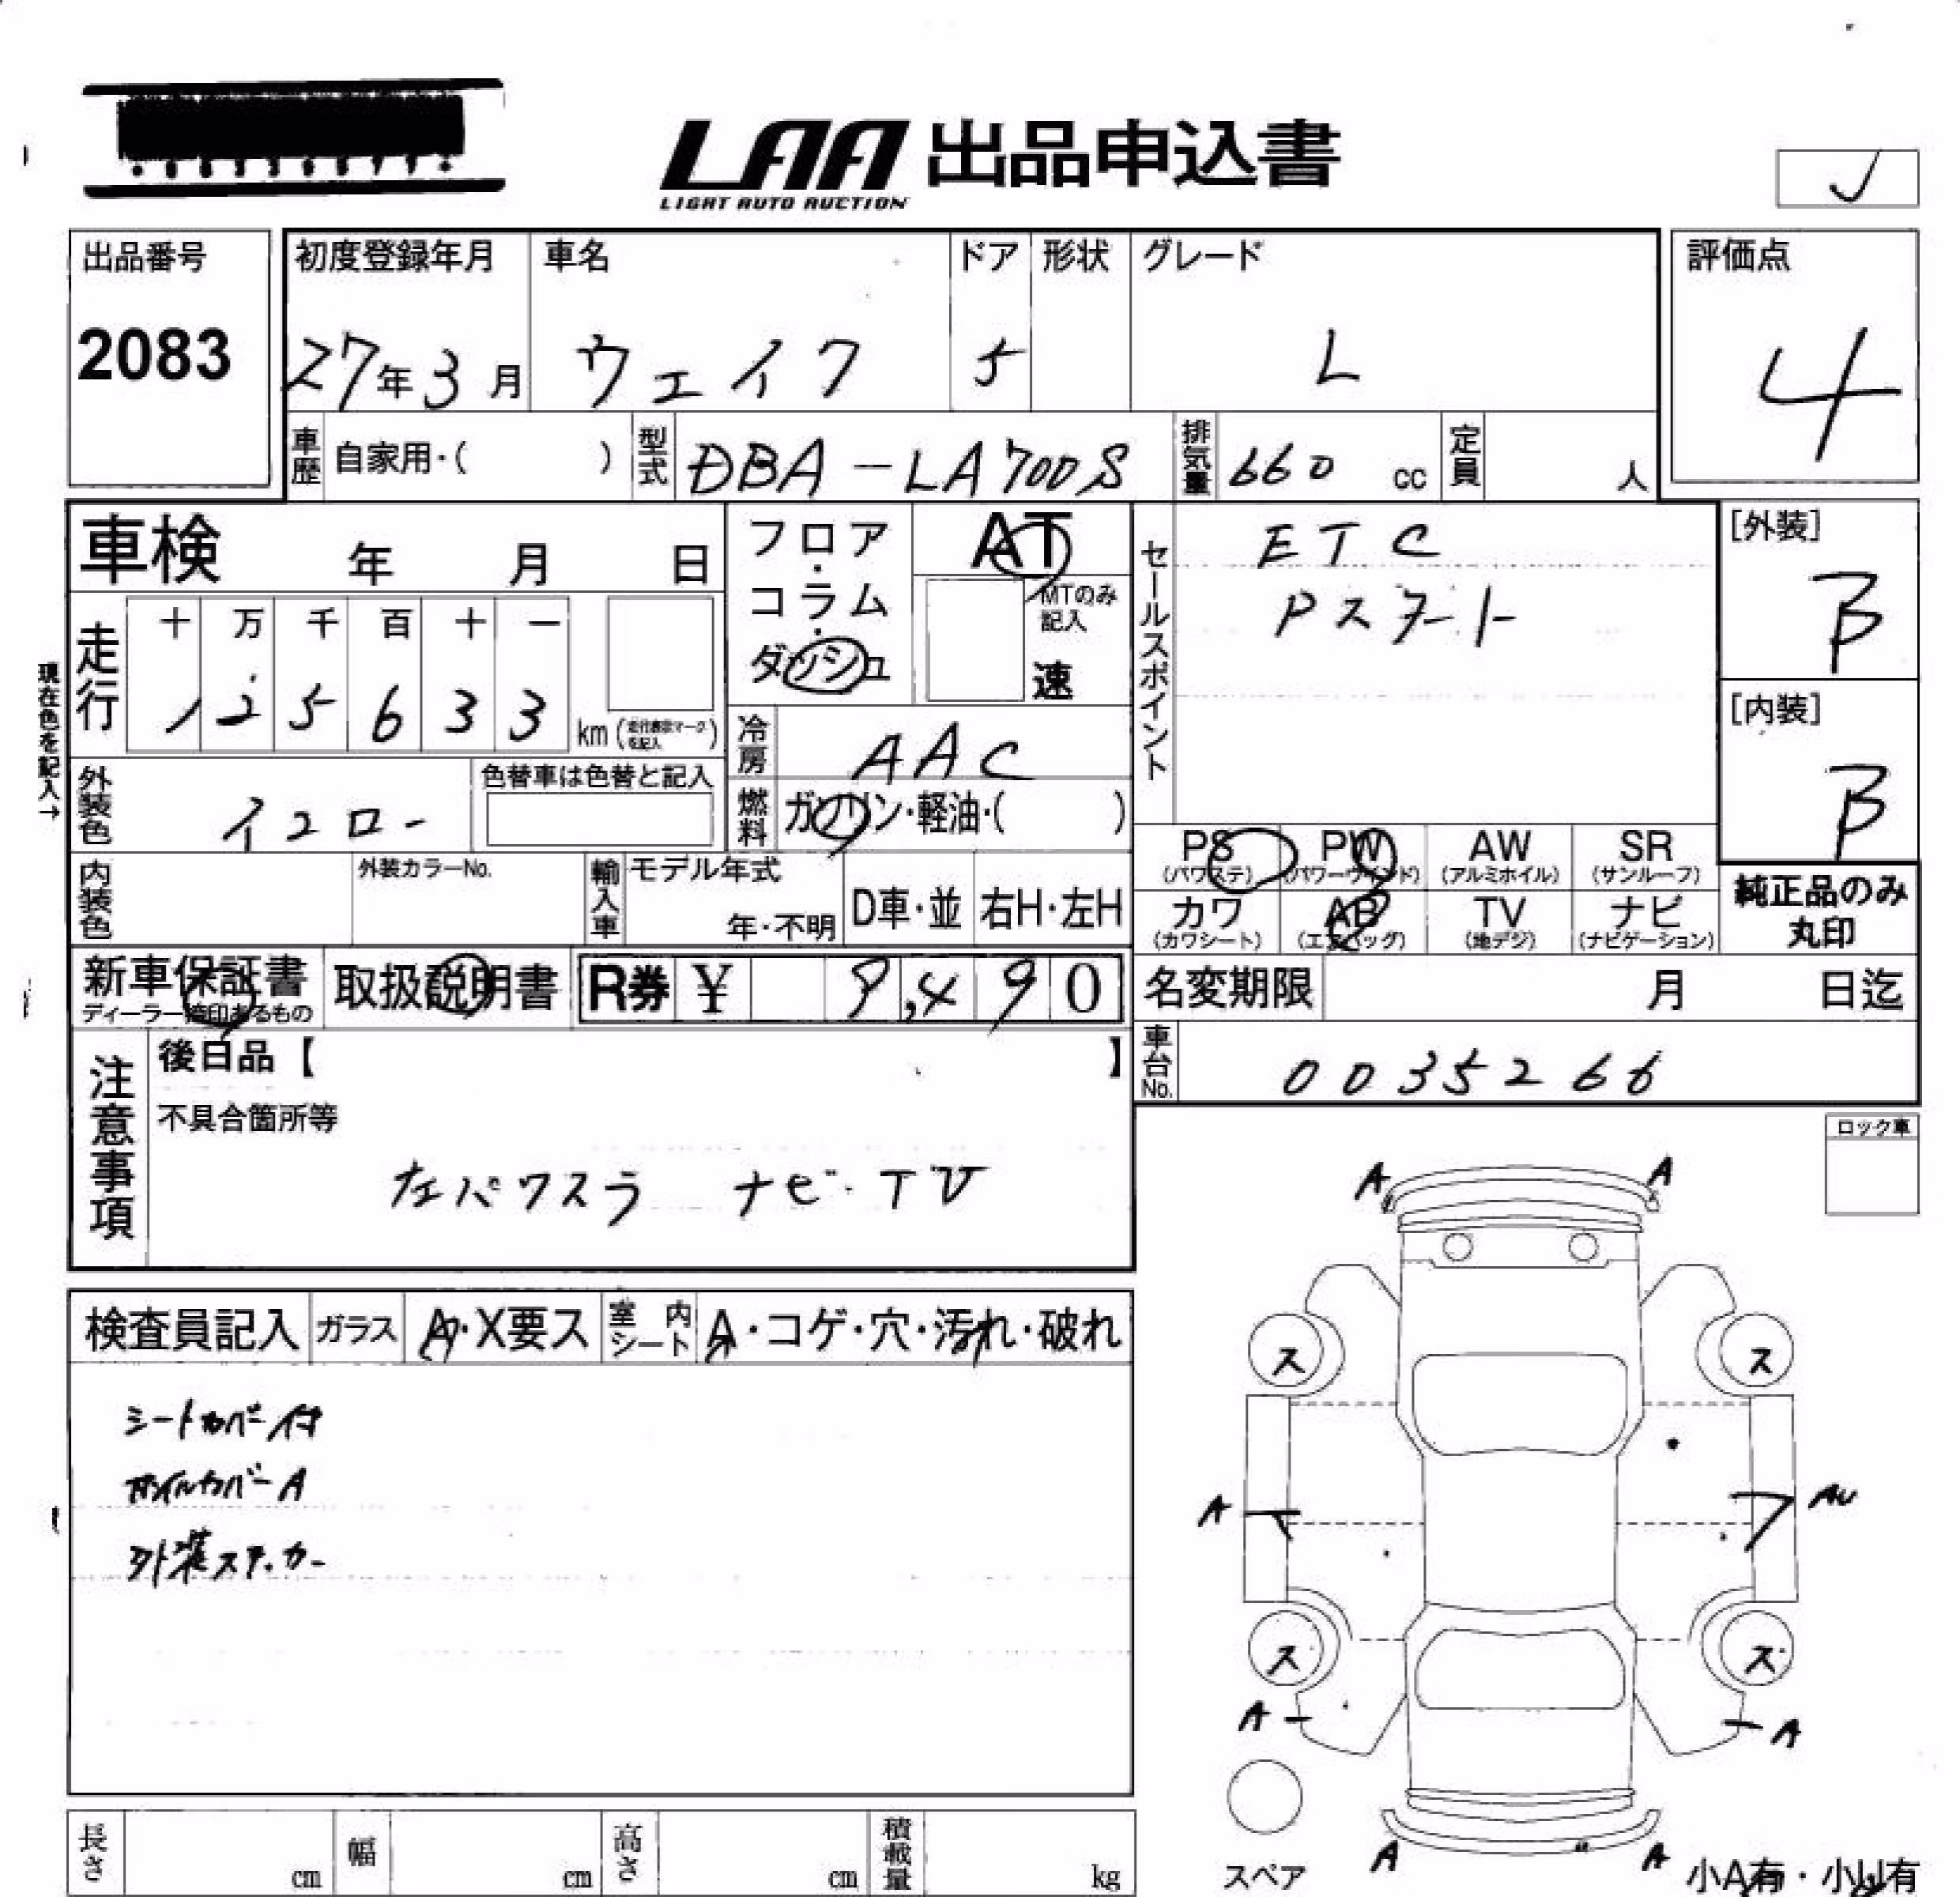 LAA 出品申込書
LIGHT AUTO AUCTION
出品番号
2083
初度登録年月 車名 ドア 形状 グレード
27年3月 ウェイク 5 L
評価点
4
車歴 自家用・( ) 型式 DBA-LA700S 排気量 660 cc 定員 人
車検 年 月 日
フロア・コラム・ダッシュ
AT
MTのみ記入
速
セールスポイント
ETC
Pスタート
[外装]
B
[内装]
B
現在色を記入→
走行
十 万 千 百 十 一
1 2 5 6 3 3 km
冷房 AAC
外装色 イエロー
色替車は色替と記入
燃料 ガソリン・軽油・( )
内装色 外装カラーNo. 輸入車 モデル年式 年・不明 D車・並 右H・左H
PS (パワステ) PW (パワーウインド) AW (アルミホイル) SR (サンルーフ)
カワ (カワシート) AB (エアバッグ) TV (地デジ) ナビ (ナビゲーション)
純正品のみ丸印
新車保証書
ディーラー捺印あるもの
取扱説明書
R券 ¥ 8,490
名変期限 月 日迄
車台No. 0035266
注意事項
後日品【 】
不具合箇所等
左パワスラ ナビ・TV
ロック車
検査員記入 ガラス A・X要ス 室内シート A・コゲ・穴・汚れ・破れ
シートカバー付
ホイルカバーA
外装ステッカー
A A
ス ス
A AU
ス ス
A A
A A
スペア
小A有・小U有
長さ cm 幅 cm 高さ cm 積載量 kg